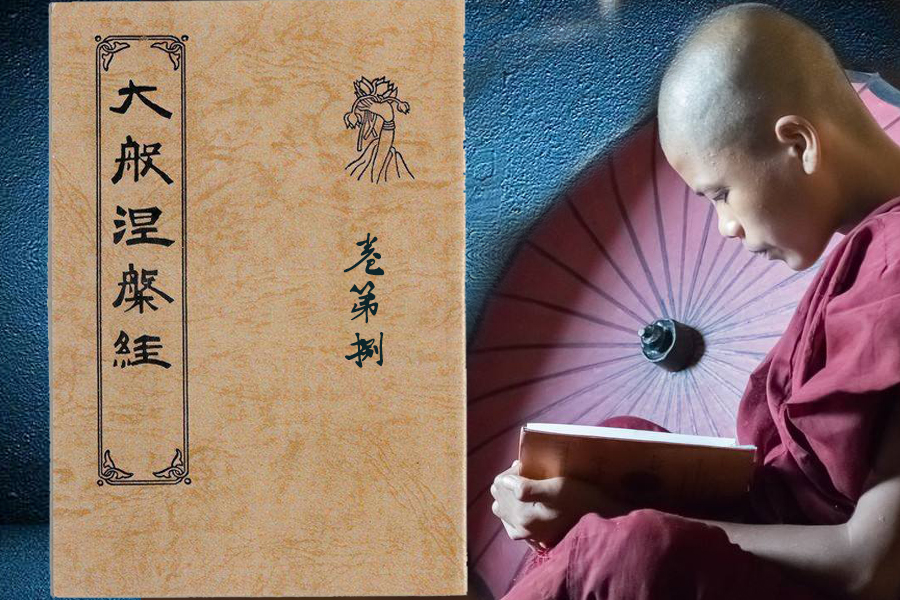 大般涅槃經
卷第捌